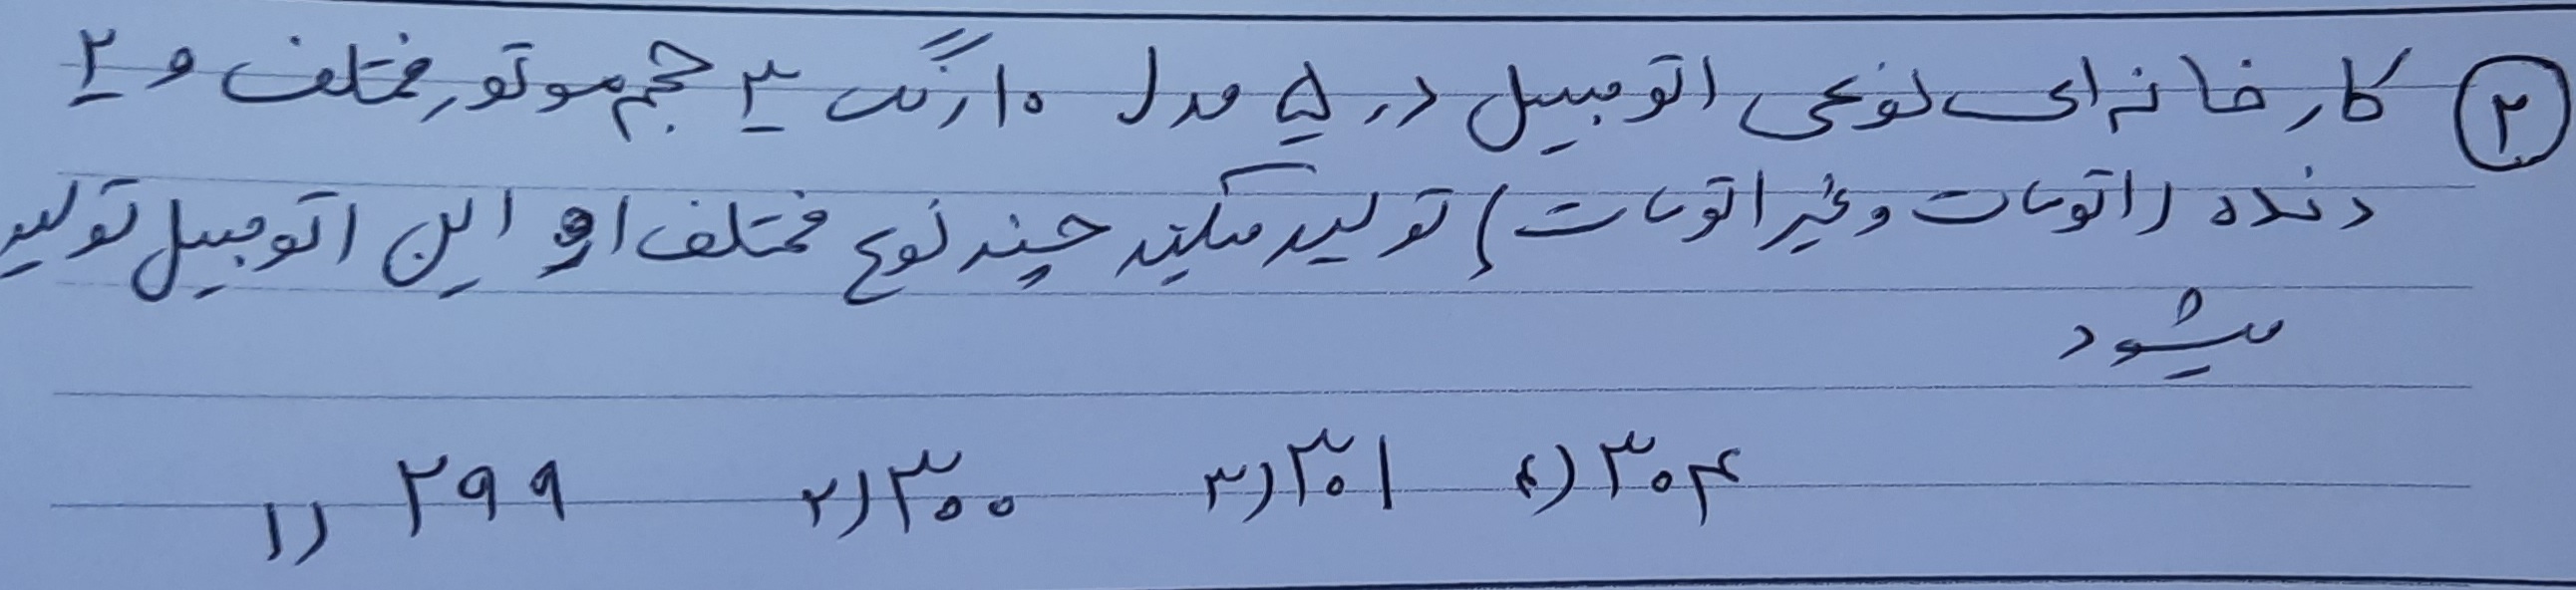 ۲ کارخانه ای نوعی اتومبیل در ۵ مدل ۱۰ رنگ ۳ حجم موتور مختلف و ۲
دنده (اتومات و غیر اتومات) تولید میکند چند نوع مختلف از این اتومبیل تولید
میشود
۱) ۲۹۹ ۲) ۳۰۰ ۳) ۳۰۱ ۴) ۳۰۴